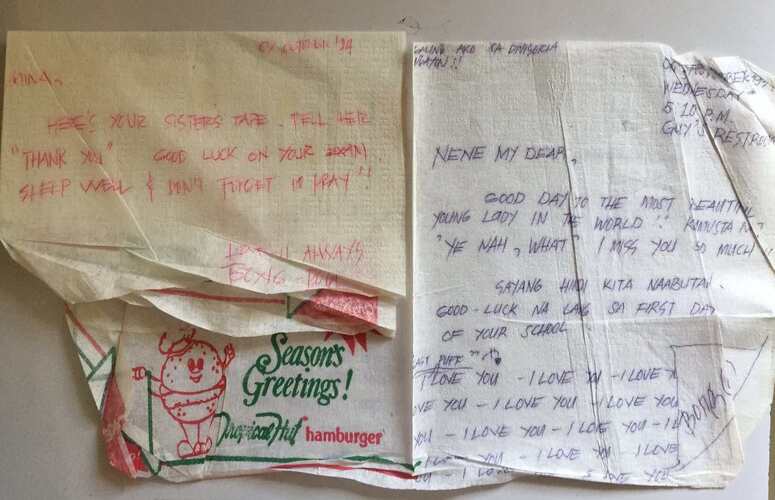 OCTOBER '94
NINA,
HERE'S YOUR SISTERS TAPE. TELL HER
"THANK YOU" GOOD LUCK ON YOUR EXAM.
SLEEP WELL & DON'T FORGET TO PRAY!!
ALWAYS
Season's
Greetings!
Tropical Hut hamburger
GALING AKO SA DIVISORIA
NGAYON!!
WEDNESDAY
5:10 P.M.
GUY'S RESTROOM
NENE MY DEAR,
GOOD DAY TO THE MOST BEAUTIFUL
YOUNG LADY IN THE WORLD!! KUMUSTA NA?
"YE NAH, WHAT" I MISS YOU SO MUCH
SAYANG HINDI KITA NAABUTAN.
GOOD-LUCK NA LANG SA FIRST DAY
OF YOUR SCHOOL
I LOVE YOU - I LOVE YOU - I LOVE Y
OVE YOU - I LOVE YOU - I LOVE YOU
YOU - I LOVE YOU - I LOVE YOU - I L
I LOVE YOU - I LOVE YOU - I LOVE
I LOVE YOU